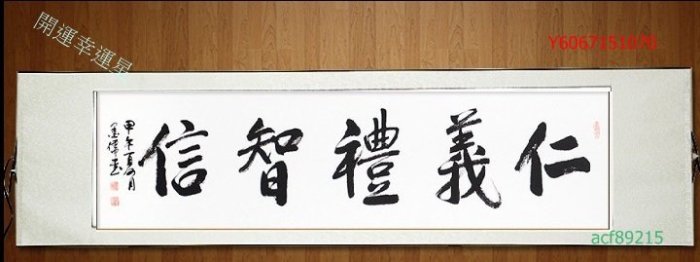 開運幸運星
Y6067151076
仁義禮智信
甲午夏月
acf89215